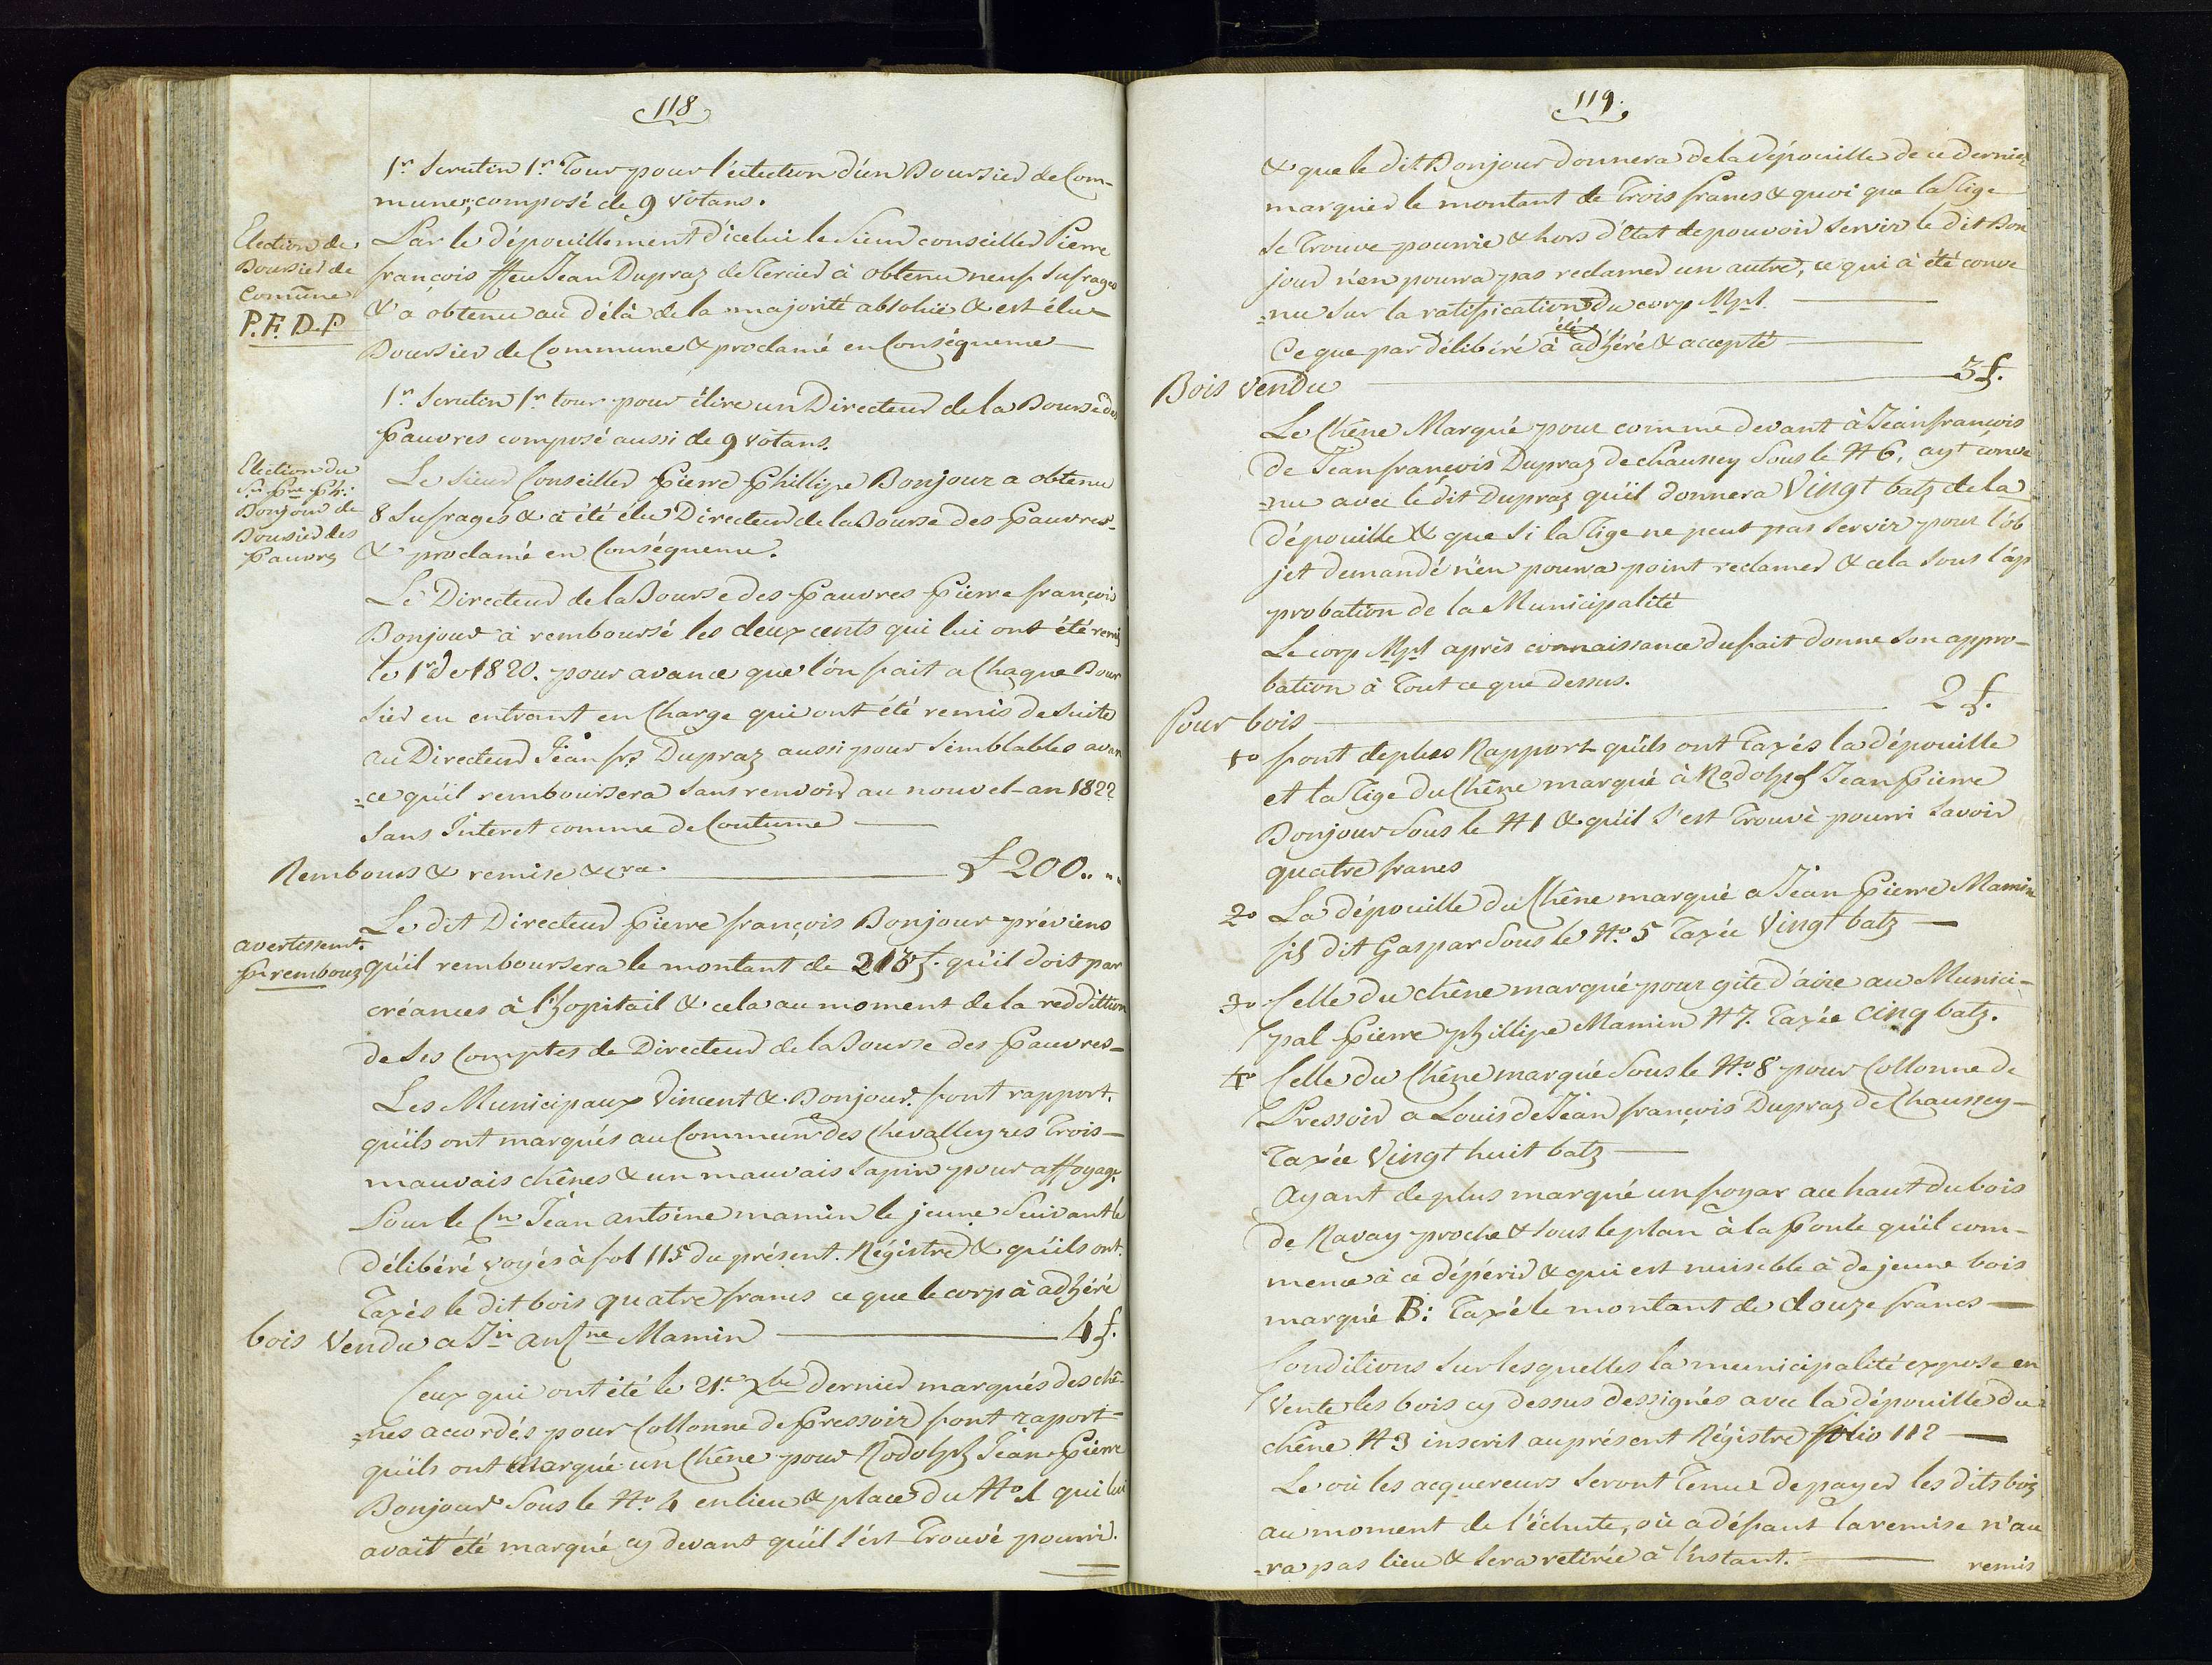 118
1.r Scrutin 1.r Tour pour l'élection d'un Boursier de Com-
mune, composé de 9 votans.
Election de
Boursier de
Comune
P. F. D. P
Par le dépouillement d'icelui le Sieur conseiller Pierre
françois ffeu Jean Dupraz de Tercier à obtenu neuf sufrages
& a obtenu au délà de la majorité absolüe & est élu
Boursier de Commune & proclamé en Conséquence
1.r Scrutin 1.r tour pour élire un Directeur de la Bourse des
Pauvres composé aussi de 9 votans.
Election du
S.r P.re Ph:
Bonjour de
Boursier des
Pauvrs
Le Sieur Conseiller Pierre Phillipe Bonjour a obtenu
8 Sufrages & à été élu Directeur de la Bourse des Pauvres-
& proclamé en Conséquence.
Le Directeur de la Bourse des Pauvres Pierre françois
Bonjour à remboursé les deux cents qui lui ont été remis
le 1.r de 1820. pour avance que l'on fait a Chaque Bour
sier en entrant en Charge qui ont été remis de suite
au Directeur Jean frs Dupraz aussi pour semblables avan
=ce qu'il remboursera sans renvoir au nouvel-an 1822
sans Interet comme de Coutume
Rembours & remise &cra. £ 200.. ..
avertissemt.
pr rembouz
Le dit Directeur Pierre françois Bonjour préviens
qu'il remboursera le montant de 218 f. qu'il doit par
créances à l'hopitail & cela au moment de la reddittion
de ses Comptes de Directeur de la Bourse des Pauvres-
Les Municipaux Vincent & Bonjour. font rapport.
qu'ils ont marqués au Commun des Chevalleyres Trois-
mauvais chênes & un mauvais sapin pour affoyage.
Pour le Cn Jean antoine mamin le jeune Suivant le
délibéré voyés à fol 115 du présent. Régistre & qu'ils ont.
Taxés le dit bois quatre francs ce que le corp à adhéré
bois Vendu a Jn antne Mamin 4 f.
Ceux qui ont été le 21.e Xbre dernier marqués des chê-
=nes accordés pour Collonne de Pressoir font raport=
qu'ils ont Marqué un Chêne pour Rodolph Jean Pierre
Bonjour Sous le No. 4 en lieu & place du No. 1 qui lui
avait été marqué cy devant qu'il s'est Trouvé pourri.
119.
& que le dit Bonjour donnera de la dépouille de ce dernier
marquier le montant de Trois francs & quoi que la Tige
se Trouve pourrie & hors d'état de pouvoir servir le dit Bon
jour n'en pourra pas reclamer un autre, ce qui à été conve
=nu sur la ratification du corp Mpl.
Ce que par délibéré à été adhéré & accepté
Bois vendu 3 f.
Le Chêne Marqué pour comme devant à Jean françois
de Jean françois Dupraz de chaussey Sous le N 6. ayt conve
=nu avec le dit Dupraz qu'il donnera Vingt batz de la
dépouille & que si la Tige ne peut pas servir pour l'ob
jet demandé n'en pourra point reclamer & cela sous l'ap
probation de la Municipalité
Le corp Mpl après connaissance du fait donne son appro-
bation à Tout ce que dessus.
Pour bois 2 f.
1o font de plus Rapport qu'ils ont Taxés la dépouille
et la Tige du Chêne marqué à Rodolph Jean Pierre
Bonjour Sous le N 1 & qu'il s'est Trouvé pourri savoir
quatre francs
2o La dépouille du Chêne marqué a Jean Pierre Mamin
fils dit Gaspar Sous le No. 5 Taxée Vingt batz
3o Celle du chêne marqué pour gite d'aire au Munici-
pal Pierre phillipe Mamin N 7. Taxée cinq batz.
4o Celle du Chêne marqué Sous le No. 8 pour Collonne de
Pressoir a Louis de Jean françois Dupraz de Chaussey-
Taxée Vingt huit batz
Ayant de plus marqué un foyar au haut du bois
de Ravay proche & sous le plan à la Poule qu'il com-
mence à ce dépérir & qui est nuisible à de jeune bois
marqué B: Taxé le montant de douze francs
Conditions sur lesquelles la municipalité expose en
Vente les bois cy dessus dessignés avec la dépouille du
chêne N 3 inscrit au présent Régistre folio 112
Le où les acquereurs seront Tenue de payer les dits boiz
au moment de l'échute, où a défaut la remise n'au
=ra pas lieu & sera retirée à l'instant.
remis